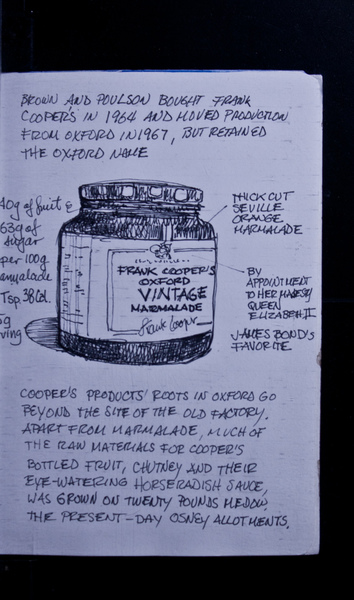 BROWN AND POULSON BOUGHT FRANK
COOPER'S IN 1964 AND MOVED PRODUCTION
FROM OXFORD IN 1967, BUT RETAINED
THE OXFORD NAME
40g of fruit &
63g of
sugar
per 100g
THICK CUT
SEVILLE
ORANGE
MARMALADE
FRANK COOPER'S
OXFORD
VINTAGE
MARMALADE
Frank Cooper
BY
APPOINTMENT
TO HER MAJESTY
QUEEN
ELIZABETH II
JAMES BOND'S
FAVORITE
COOPER'S PRODUCTS' ROOTS IN OXFORD GO
BEYOND THE SITE OF THE OLD FACTORY.
APART FROM MARMALADE, MUCH OF
THE RAW MATERIALS FOR COOPER'S
BOTTLED FRUIT, CHUTNEY AND THEIR
EYE-WATERING HORSERADISH SAUCE,
WAS GROWN ON TWENTY POUNDS MEDOW,
THE PRESENT-DAY OSNEY ALLOTMENTS.